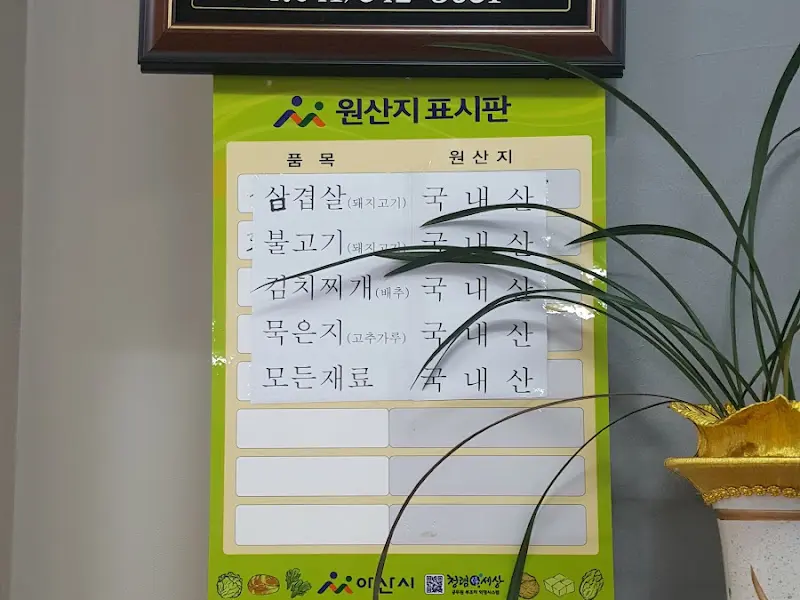 원산지 표시판
품 목 원 산 지
삼겹살(돼지고기) 국 내 산
불고기(돼지고기) 국 내 산
김치찌개(배추) 국 내 산
묵은지(고추가루) 국 내 산
모든재료 국 내 산
아산시 청렴e세상